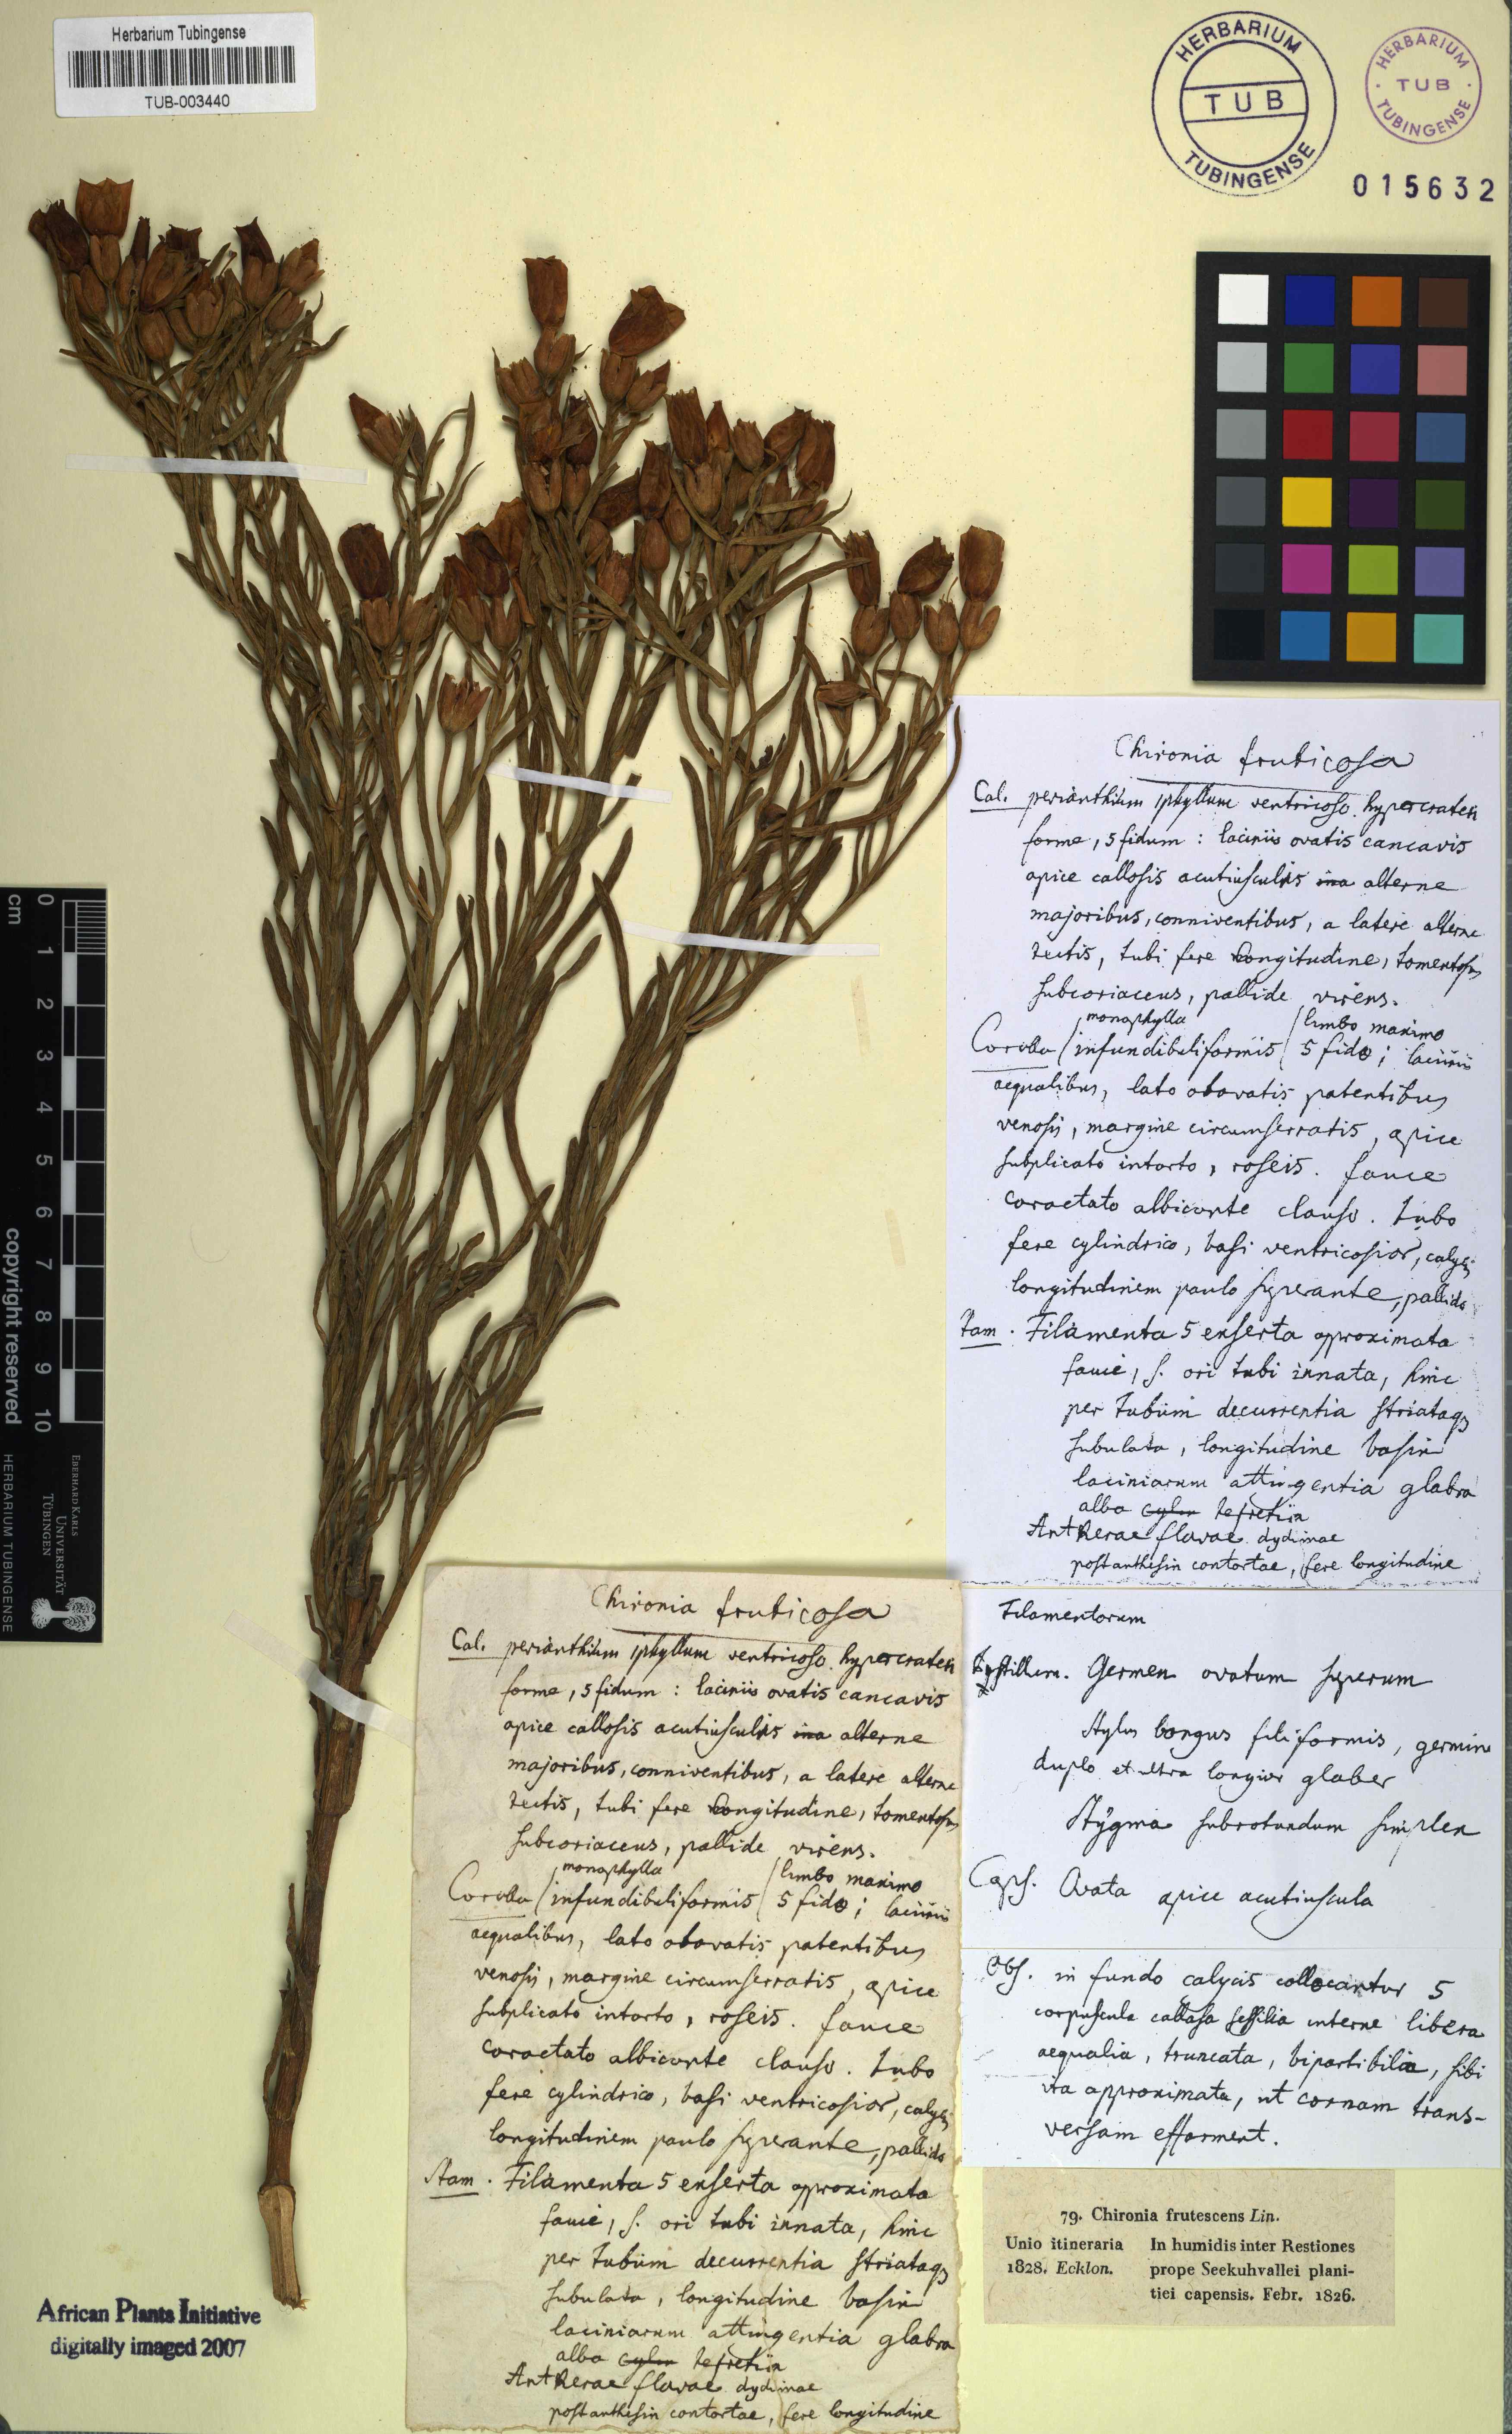 Herbarium Tubingense
TUB-003440
HERBARIUM
TUB
TUBINGENSE
HERBARIUM
TUB
TUBINGENSE
015632
Chironia fruticosa
Cal. perianthium 1phyllum ventricoso hypercrateri
forme, 5fidum : laciniis ovatis concavis
apice callosis acutiusculis alterne
majoribus, conniventibus, a latere alterne
tectis, tubi fere longitudine, tomentosus
subcoriaceus, pallide virens.
Corolla monophylla infundibuliformis limbo maximo 5 fido ; laciniis
aequalibus, lato obovatis patentibus
venosis, margine circumserratis, apice
subplicato intorto, roseis. fauce
coarctato albicante clauso. Tubo
fere cylindrico, basi ventricosior, calycis
longitudinem paulo superante, pallido
Stam. Filamenta 5 exserta approximata
fauci, s. ori tubi innata, hinc
per Tubum decurrentia striataq
subulata, longitudine basin
laciniarum attingentia glabra
alba
Antherae flavae dydimae
post anthesin contortae, fere longitudine
Filamentorum
Pystillum. Germen ovatum superum
Stylus longus filiformis, germine
duplo et ultra longior glaber
Stygma subrotundum simplex
Caps. Ovata apice acutiuscula
Obs. in fundo calycis collocantur 5
corpuscula callosa sessilia interne libera
aequalia, truncata, bipartibilia, sibi
ita approximata, ut trans-
versam efforment.
79. Chironia frutescens Lin.
Unio itineraria
1828. Ecklon.
In humidis inter Restiones
prope Seekuhvallei plani-
tiei capensis. Febr. 1826.
Chironia fruticosa
Cal. perianthium 1phyllum ventricoso hypercrateri
forme, 5fidum : laciniis ovatis concavis
apice callosis acutiusculis alterne
majoribus, conniventibus, a latere alterne
tectis, tubi fere longitudine, tomentosus
subcoriaceus, pallide virens.
Corolla monophylla infundibuliformis limbo maximo 5 fido ; laciniis
aequalibus, lato obovatis patentibus
venosis, margine circumserratis, apice
subplicato intorto, roseis. fauce
coarctato albicante clauso. Tubo
fere cylindrico, basi ventricosior, calycis
longitudinem paulo superante, pallido
Stam. Filamenta 5 exserta approximata
fauci, s. ori tubi innata, hinc
per Tubum decurrentia striataq
subulata, longitudine basin
laciniarum attingentia glabra
alba
Antherae flavae dydimae
post anthesin contortae, fere longitudine
cm 0 1 2 3 4 5 6 7 8 9 10
copyright reserved
HERBARIUM TUBINGENSE
EBERHARD KARLS
UNIVERSITÄT
TÜBINGEN
African Plants Initiative
digitally imaged 2007